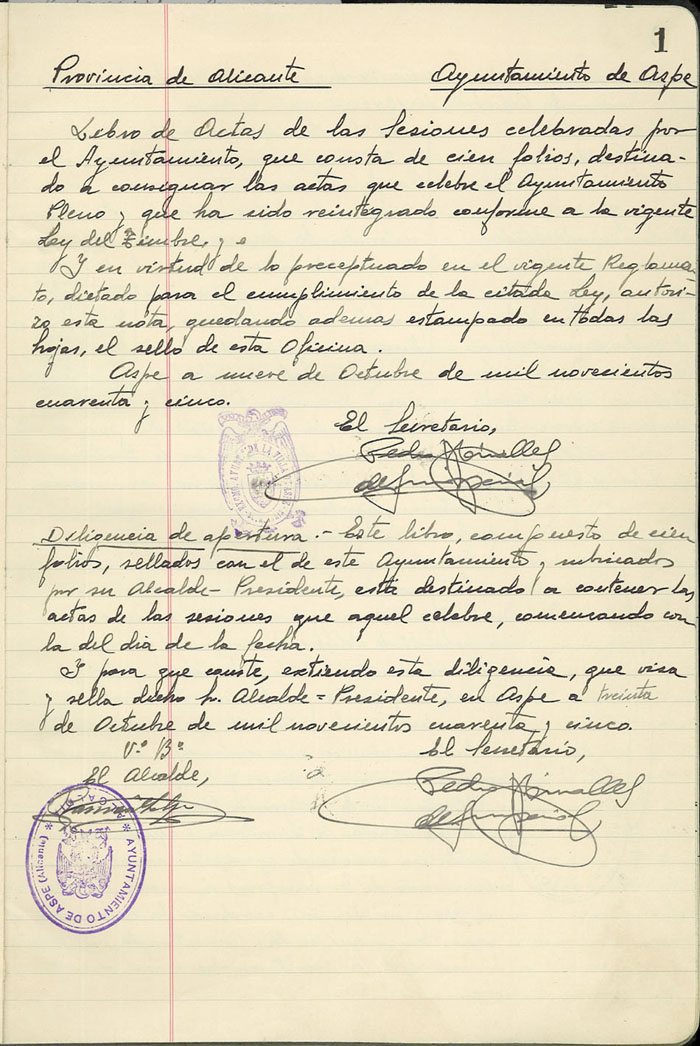 1
Provincia de Alicante Ayuntamiento de Aspe
Libro de Actas de las Sesiones celebradas por
el Ayuntamiento, que consta de cien folios, destina-
do a consignar las actas que celebre el Ayuntamiento
Pleno y que ha sido reintegrado conforme a la vigente
Ley del Timbre, y
Y en virtud de lo preceptuado en el vigente Reglamen-
to, dictado para el cumplimiento de la citada Ley, autori-
zo esta nota, quedando ademas estampado en todas las
hojas, el sello de esta Oficina.
Aspe a nueve de Octubre de mil novecientos
cuarenta y cinco.
El Secretario,
Pedro
Diligencia de apertura.- Este libro, compuesto de cien
folios, sellados con el de este Ayuntamiento y rubricados
por su Alcalde-Presidente, está destinado a contener las
actas de las sesiones que aquel celebre, comenzando con
la del dia de la fecha.
Y para que conste, extiendo esta diligencia, que visa
y sella dicho Sr. Alcalde=Presidente, en Aspe a treinta
de Octubre de mil novecientos cuarenta y cinco.
Vº Bº
El Secretario,
El Alcalde,
Pedro
AYUNTAMIENTO DE ASPE (Alicante)